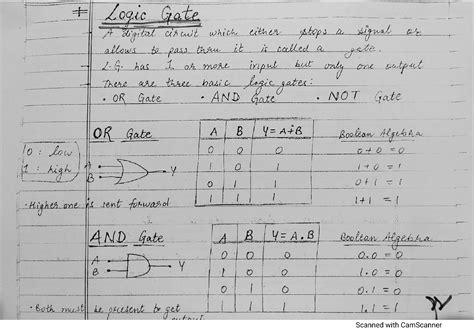 * Logic Gate
A digital circuit which either stops a signal or
allows to pass thru it is called a gate.
L.G. has 1 or more input but only one output
There are three basic logic gates:
• OR Gate • AND Gate • NOT Gate
OR Gate
A B Y = A+B Boolean Algebra
0 : low
1 : high
A
B
Y
0 0 0 0+0 = 0
1 0 1 1+0 = 1
0 1 1 0+1 = 1
1 1 1 1+1 = 1
• Higher one is sent forward
AND Gate
A B Y = A.B Boolean Algebra
A
B
Y
0 0 0 0.0 = 0
1 0 0 1.0 = 0
0 1 0 0.1 = 0
1 1 1 1.1 = 1
• Both must be present to get
output
Scanned with CamScanner